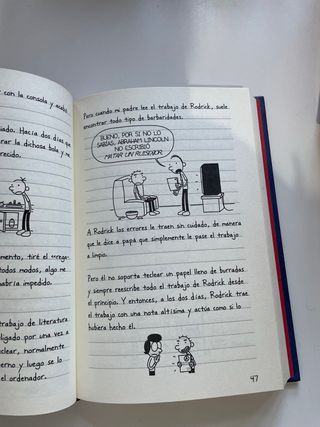 con la consola y acabé
iado. Hacía dos días que
rar la dichosa bola y me
recido.
mento, tiré el «rega-
todos modos, algo me
habría impedido.
trabajo de literatura
ligado por una vez a
clear, normalmente
erno y luego se lo
el ordenador.
Pero cuando mi padre lee el trabajo de Rodrick, suele
encontrar todo tipo de barbaridades.
BUENO, POR SI NO LO
SABÍAS, ABRAHAM LINCOLN
NO ESCRIBIÓ
MATAR UN RUISEÑOR.
A Rodrick los errores le traen sin cuidado, de manera
que le dice a papá que simplemente le pase el trabajo
a limpio.
Pero él no soporta teclear un papel lleno de burradas
y siempre reescribe todo el trabajo de Rodrick desde
el principio. Y entonces, a los dos días, Rodrick trae
el trabajo con una nota altísima y actúa como si lo
hubera hecho él.
97